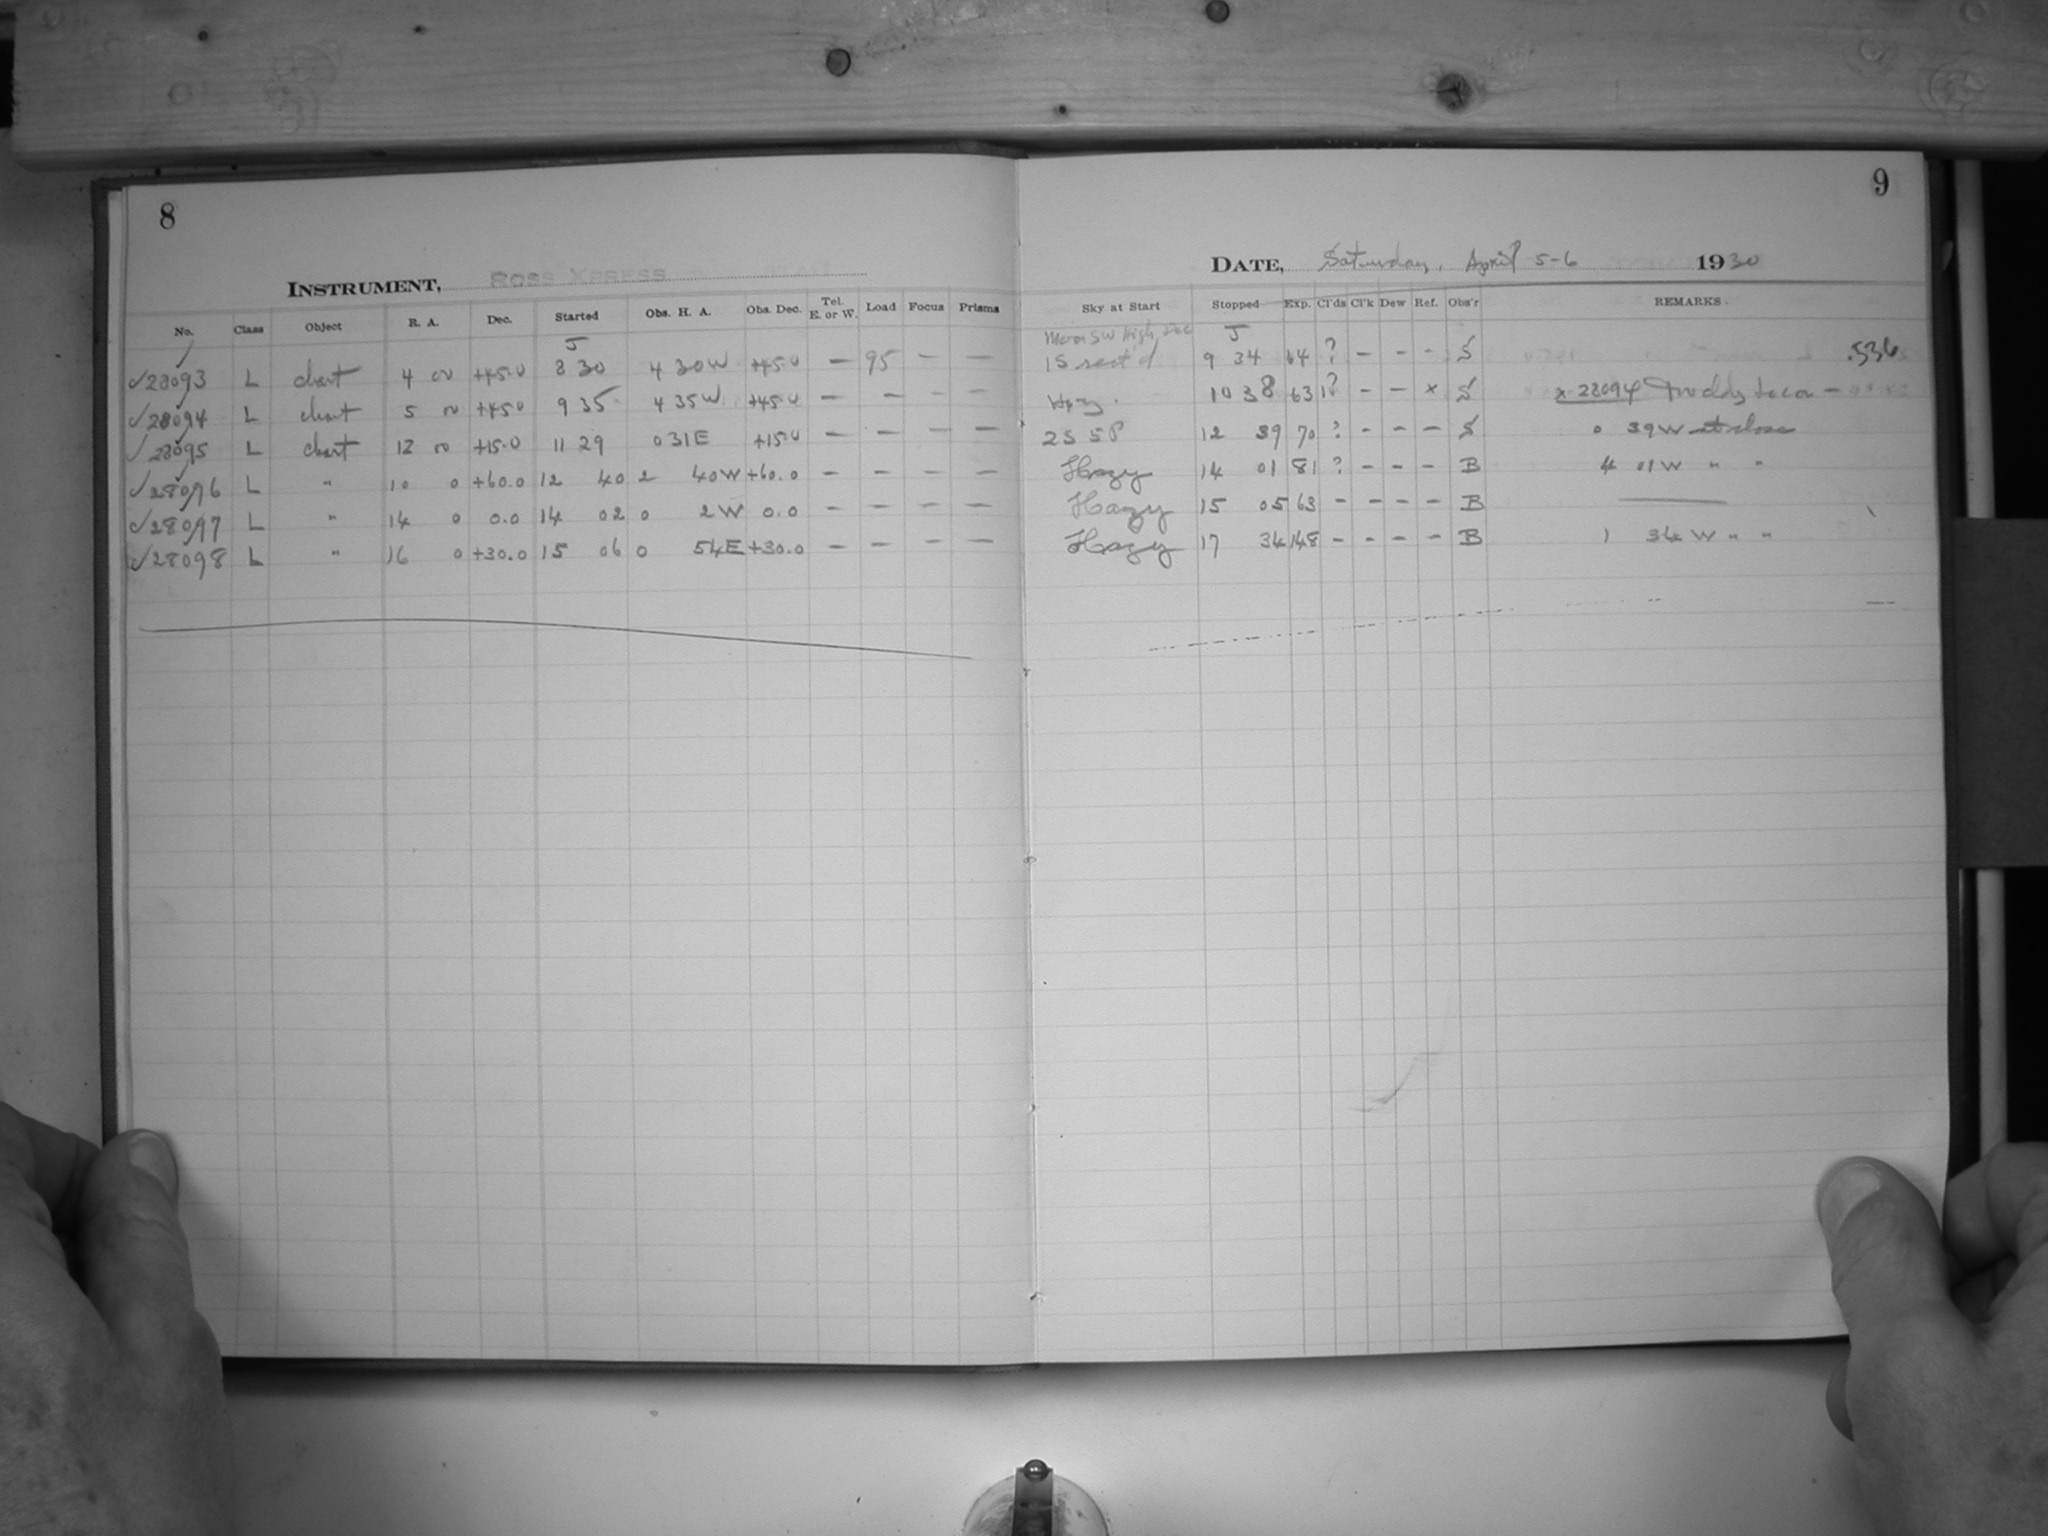 8
INSTRUMENT, ROSS XPRESS
No. Class Object R. A. Dec. Started Obs. H. A. Obs. Dec. Tel. E. or W. Load Focus Prisms
J
✓28093 L chart 4 00 +45.0 8 30 4 30W +45.0 — 95 — —
✓28094 L chart 5 00 +45.0 9 35 4 35W +45.0 — — — —
✓28095 L chart 12 00 +15.0 11 29 0 31E +15.0 — — — —
✓28096 L " 10 0 +60.0 12 40 2 40W +60.0 — — — —
✓28097 L " 14 0 0.0 14 02 0 2W 0.0 — — — —
✓28098 L " 16 0 +30.0 15 06 0 54E +30.0 — — — —
9
DATE, Saturday, April 5-6 1930
Sky at Start Stopped Exp. Cl'ds Cl'k Dew Ref. Obs'r REMARKS
SW High J
1S 9 34 64 ? — — — S .536
Hazy. 10 38 63 1? — — x S x-28094
2S 5P 12 39 70 ? — — — S 0 39W at close
Hazy 14 01 81 ? — — — B 4 01W " "
Hazy 15 05 63 — — — — B
Hazy 17 34 148 — — — — B 1 34W " "